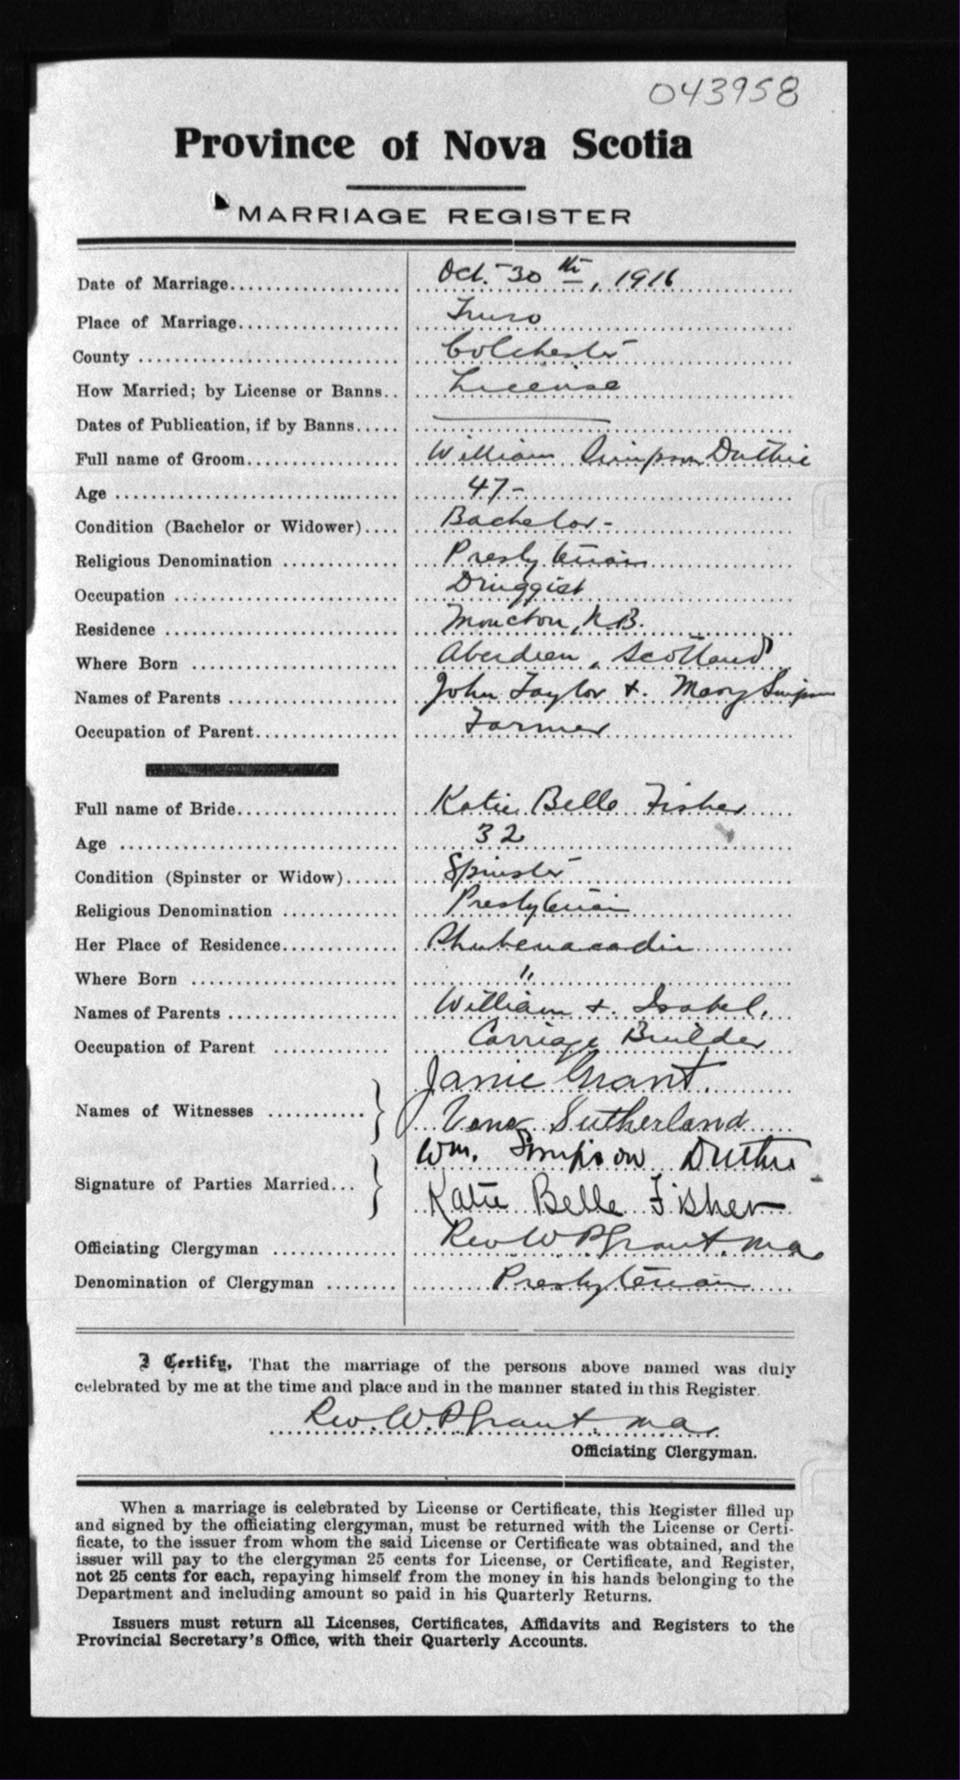 043958
Province of Nova Scotia
MARRIAGE REGISTER
Date of Marriage Oct. 30th, 1916
Place of Marriage Truro
County Colchester
How Married; by License or Banns License
Dates of Publication, if by Banns
Full name of Groom William Simpson Duthie
Age 47-
Condition (Bachelor or Widower) Bachelor-
Religious Denomination Presbyterian
Occupation Druggist
Residence Moncton, N.B.
Where Born Aberdeen, Scotland
Names of Parents John Taylor &. Mary Simpson
Occupation of Parent Farmer
Full name of Bride Katie Belle Fisher
Age 32
Condition (Spinster or Widow) Spinster
Religious Denomination Presbyterian
Her Place of Residence Shubenacadie
Where Born "
Names of Parents William &. Isabel.
Occupation of Parent Carriage Builder
Janie Grant.
Names of Witnesses
Vena Sutherland
Wm. Simpson Duthie
Signature of Parties Married...
Katie Belle Fisher
Officiating Clergyman Rev W P Grant. M a
Denomination of Clergyman Presbyterian
I Certify, That the marriage of the persons above named was duly
celebrated by me at the time and place and in the manner stated in this Register.
Rev. W. P Grant. M a.
Officiating Clergyman.
When a marriage is celebrated by License or Certificate, this Register filled up
and signed by the officiating clergyman, must be returned with the License or Certi-
ficate, to the issuer from whom the said License or Certificate was obtained, and the
issuer will pay to the clergyman 25 cents for License, or Certificate, and Register,
not 25 cents for each, repaying himself from the money in his hands belonging to the
Department and including amount so paid in his Quarterly Returns.
Issuers must return all Licenses, Certificates, Affidavits and Registers to the
Provincial Secretary's Office, with their Quarterly Accounts.